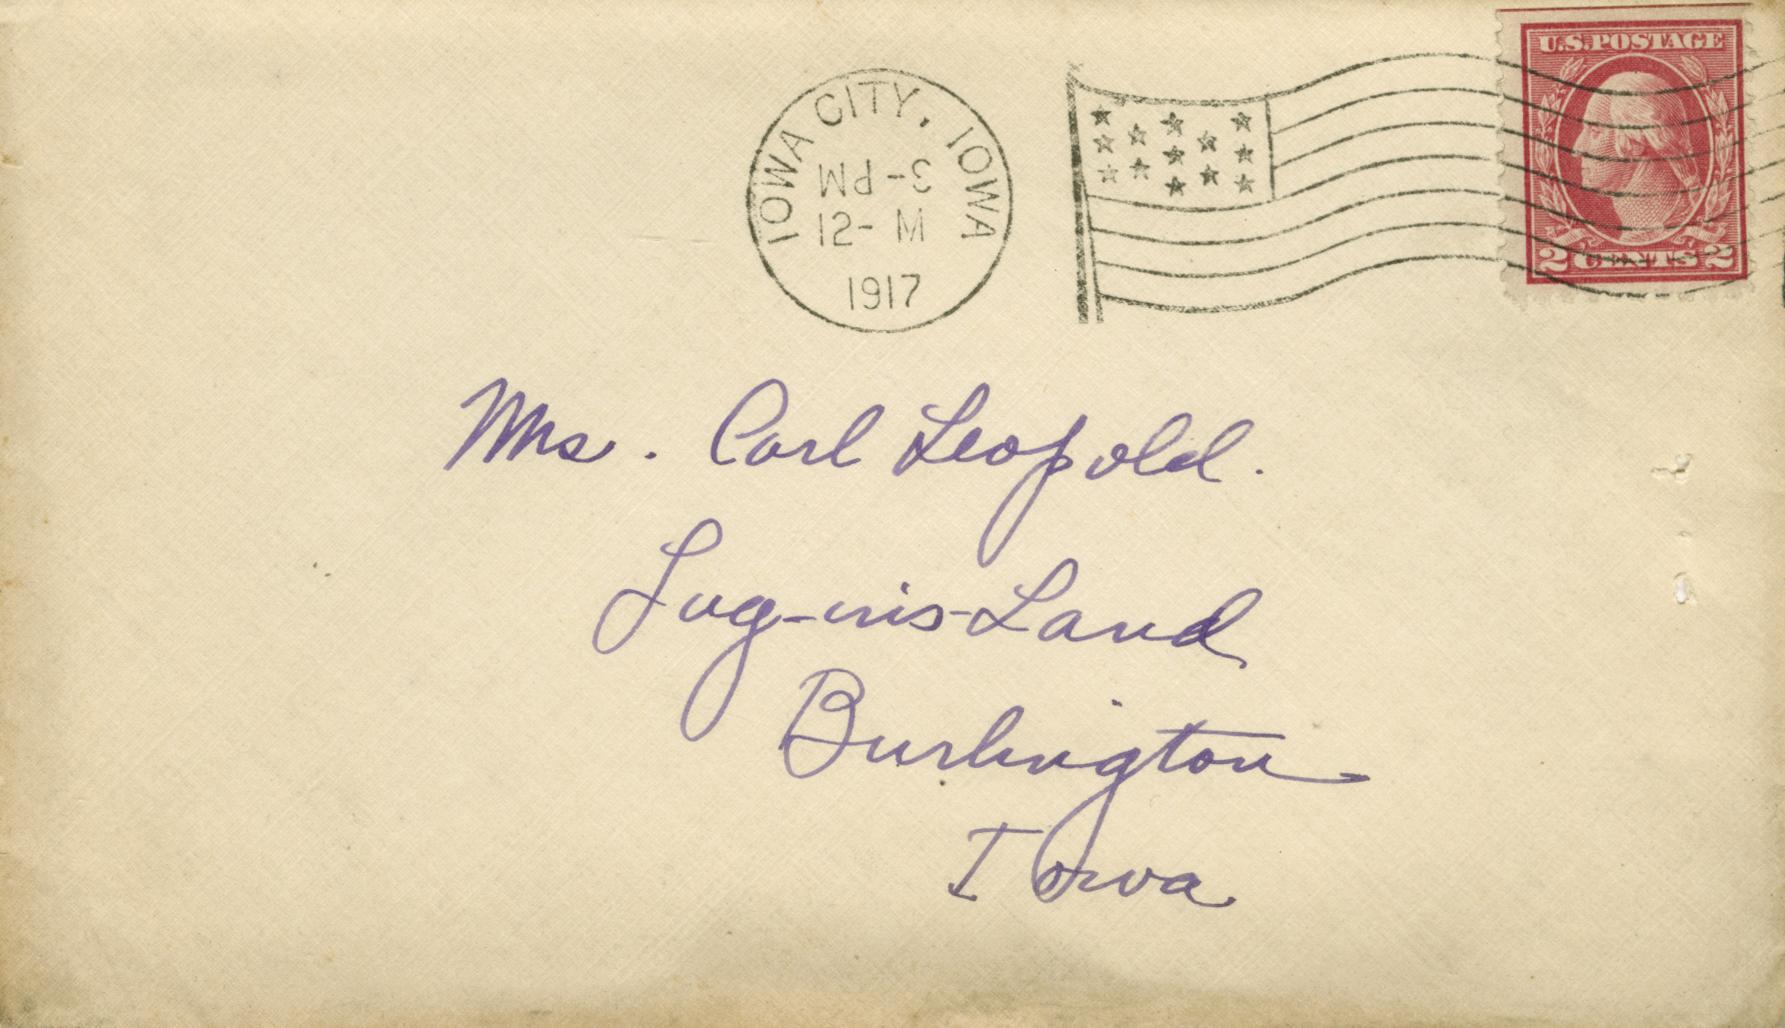 U.S. POSTAGE
IOWA CITY, IOWA
3-PM
12- M
1917
2 CENTS 2
Mrs. Carl Leopold.
Lug-ins-Land
Burlington
Iowa